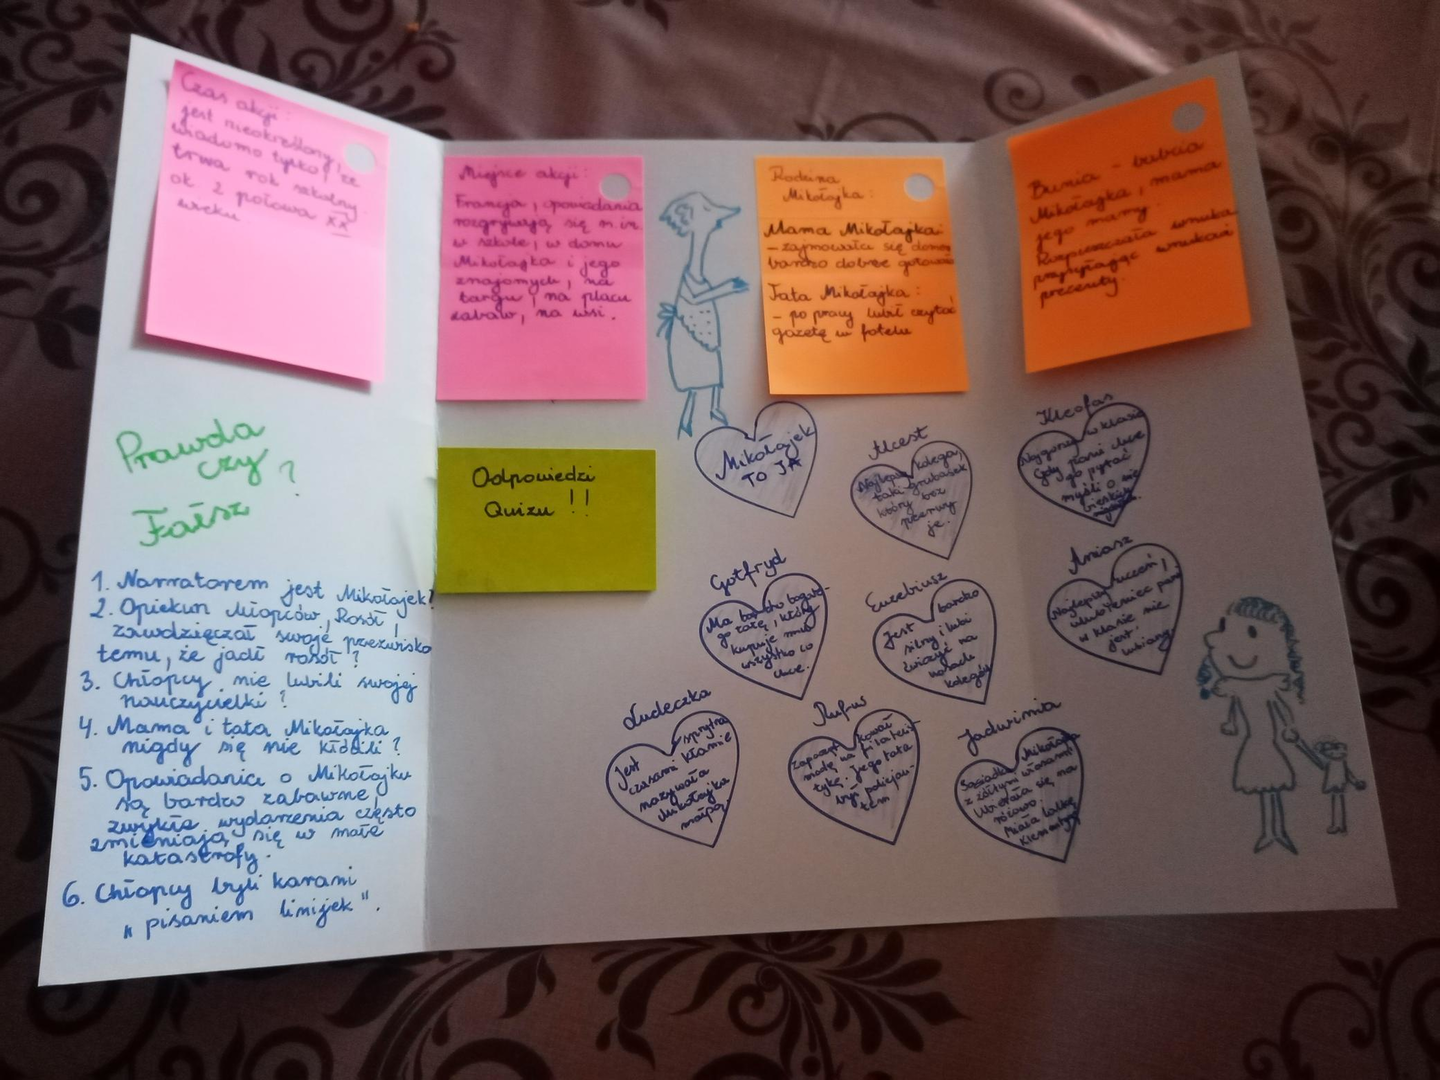 Czas akcji:
jest nieokreślony,
wiadomo tylko, że
trwa rok szkolny
ok. 2 połowa XX
wieku
Miejsce akcji:
Francja, opowiadania
rozgrywają się m.in.
w szkole, w domu
Mikołajka i jego
znajomych, na
targu, na placu
zabaw, na wsi.
Rodzina
Mikołajka:
Mama Mikołajka:
- zajmowała się domem
bardzo dobrze gotowała
Tata Mikołajka:
- po pracy lubił czytać
gazetę w fotelu
Bunia - babcia
Mikołajka, mama
jego mamy.
Rozpieszczała wnuka
przysyłając wnukowi
prezenty.
Prawda
czy
Fałsz
?
1. Narratorem jest Mikołajek?
2. Opiekun chłopców, Rosół,
zawdzięczał swoje przezwisko
temu, że jadł rosół?
3. Chłopcy nie lubili swojej
nauczycielki?
4. Mama i tata Mikołajka
nigdy się nie kłócili?
5. Opowiadania o Mikołajku
są bardzo zabawne,
zwykłe wydarzenia często
zmieniają się w małe
katastrofy.
6. Chłopcy byli karani
"pisaniem linijek".
Odpowiedzi
Quizu !!
Mikołajek
TO JA
Alcest
Najlepszy kolega,
taki grubasek
który bez
przerwy
je.
Kleofas
Najgorszy w klasie
Gdy pani chce
go pytać
myśli o nie
Gotfryd
Ma bardzo bogate-
go tatę, który
kupuje mu
wszystko co
chce.
Euzebiusz
Jest bardzo
silny i lubi
ćwiczyć na
nosach
kolegów
Ananiasz
Najlepszy uczeń i
ulubieniec pani
w klasie nie
jest
lubiany
Ludeczka
Jest sprytna
czasami kłamie
nazywała
Mikołajka
małpą
Rufus
Zapoczątkował
modę na filatelis-
tykę. Jego tata
był policjan-
tem
Jadwinia
Sąsiadka Mikołajka
z żółtymi włosami
Ubierała się na
różowo
Miała lalkę